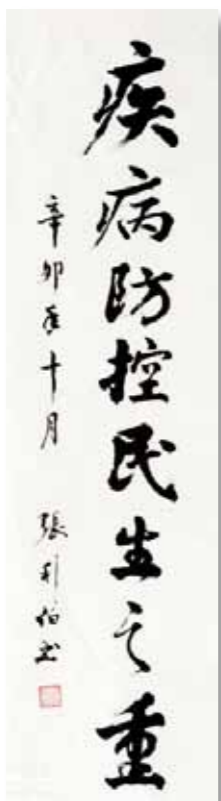 疾病防控民生之重
辛卯年十月 張利伯書